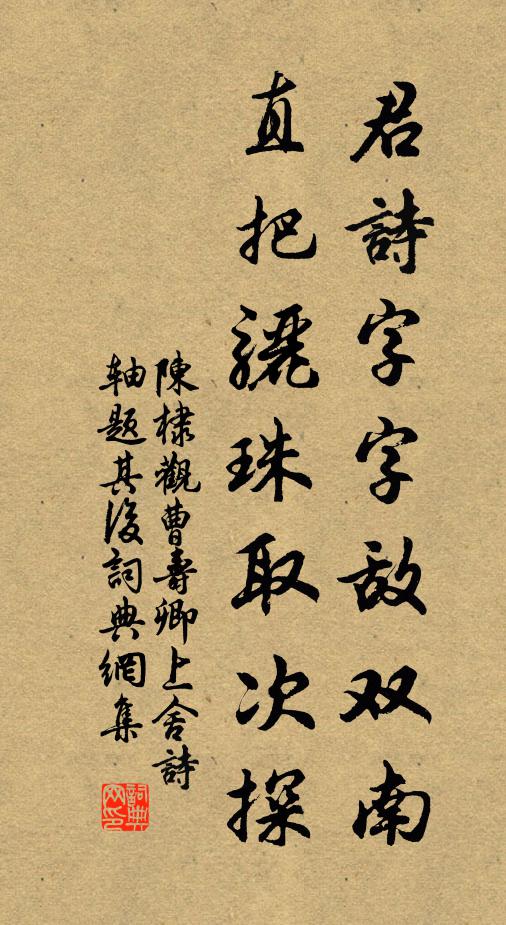 君詩字字敌双南
直把驪珠取次探
陳棣觀曹壽卿上舍詩
軸题其後詞典網集
詞典网印